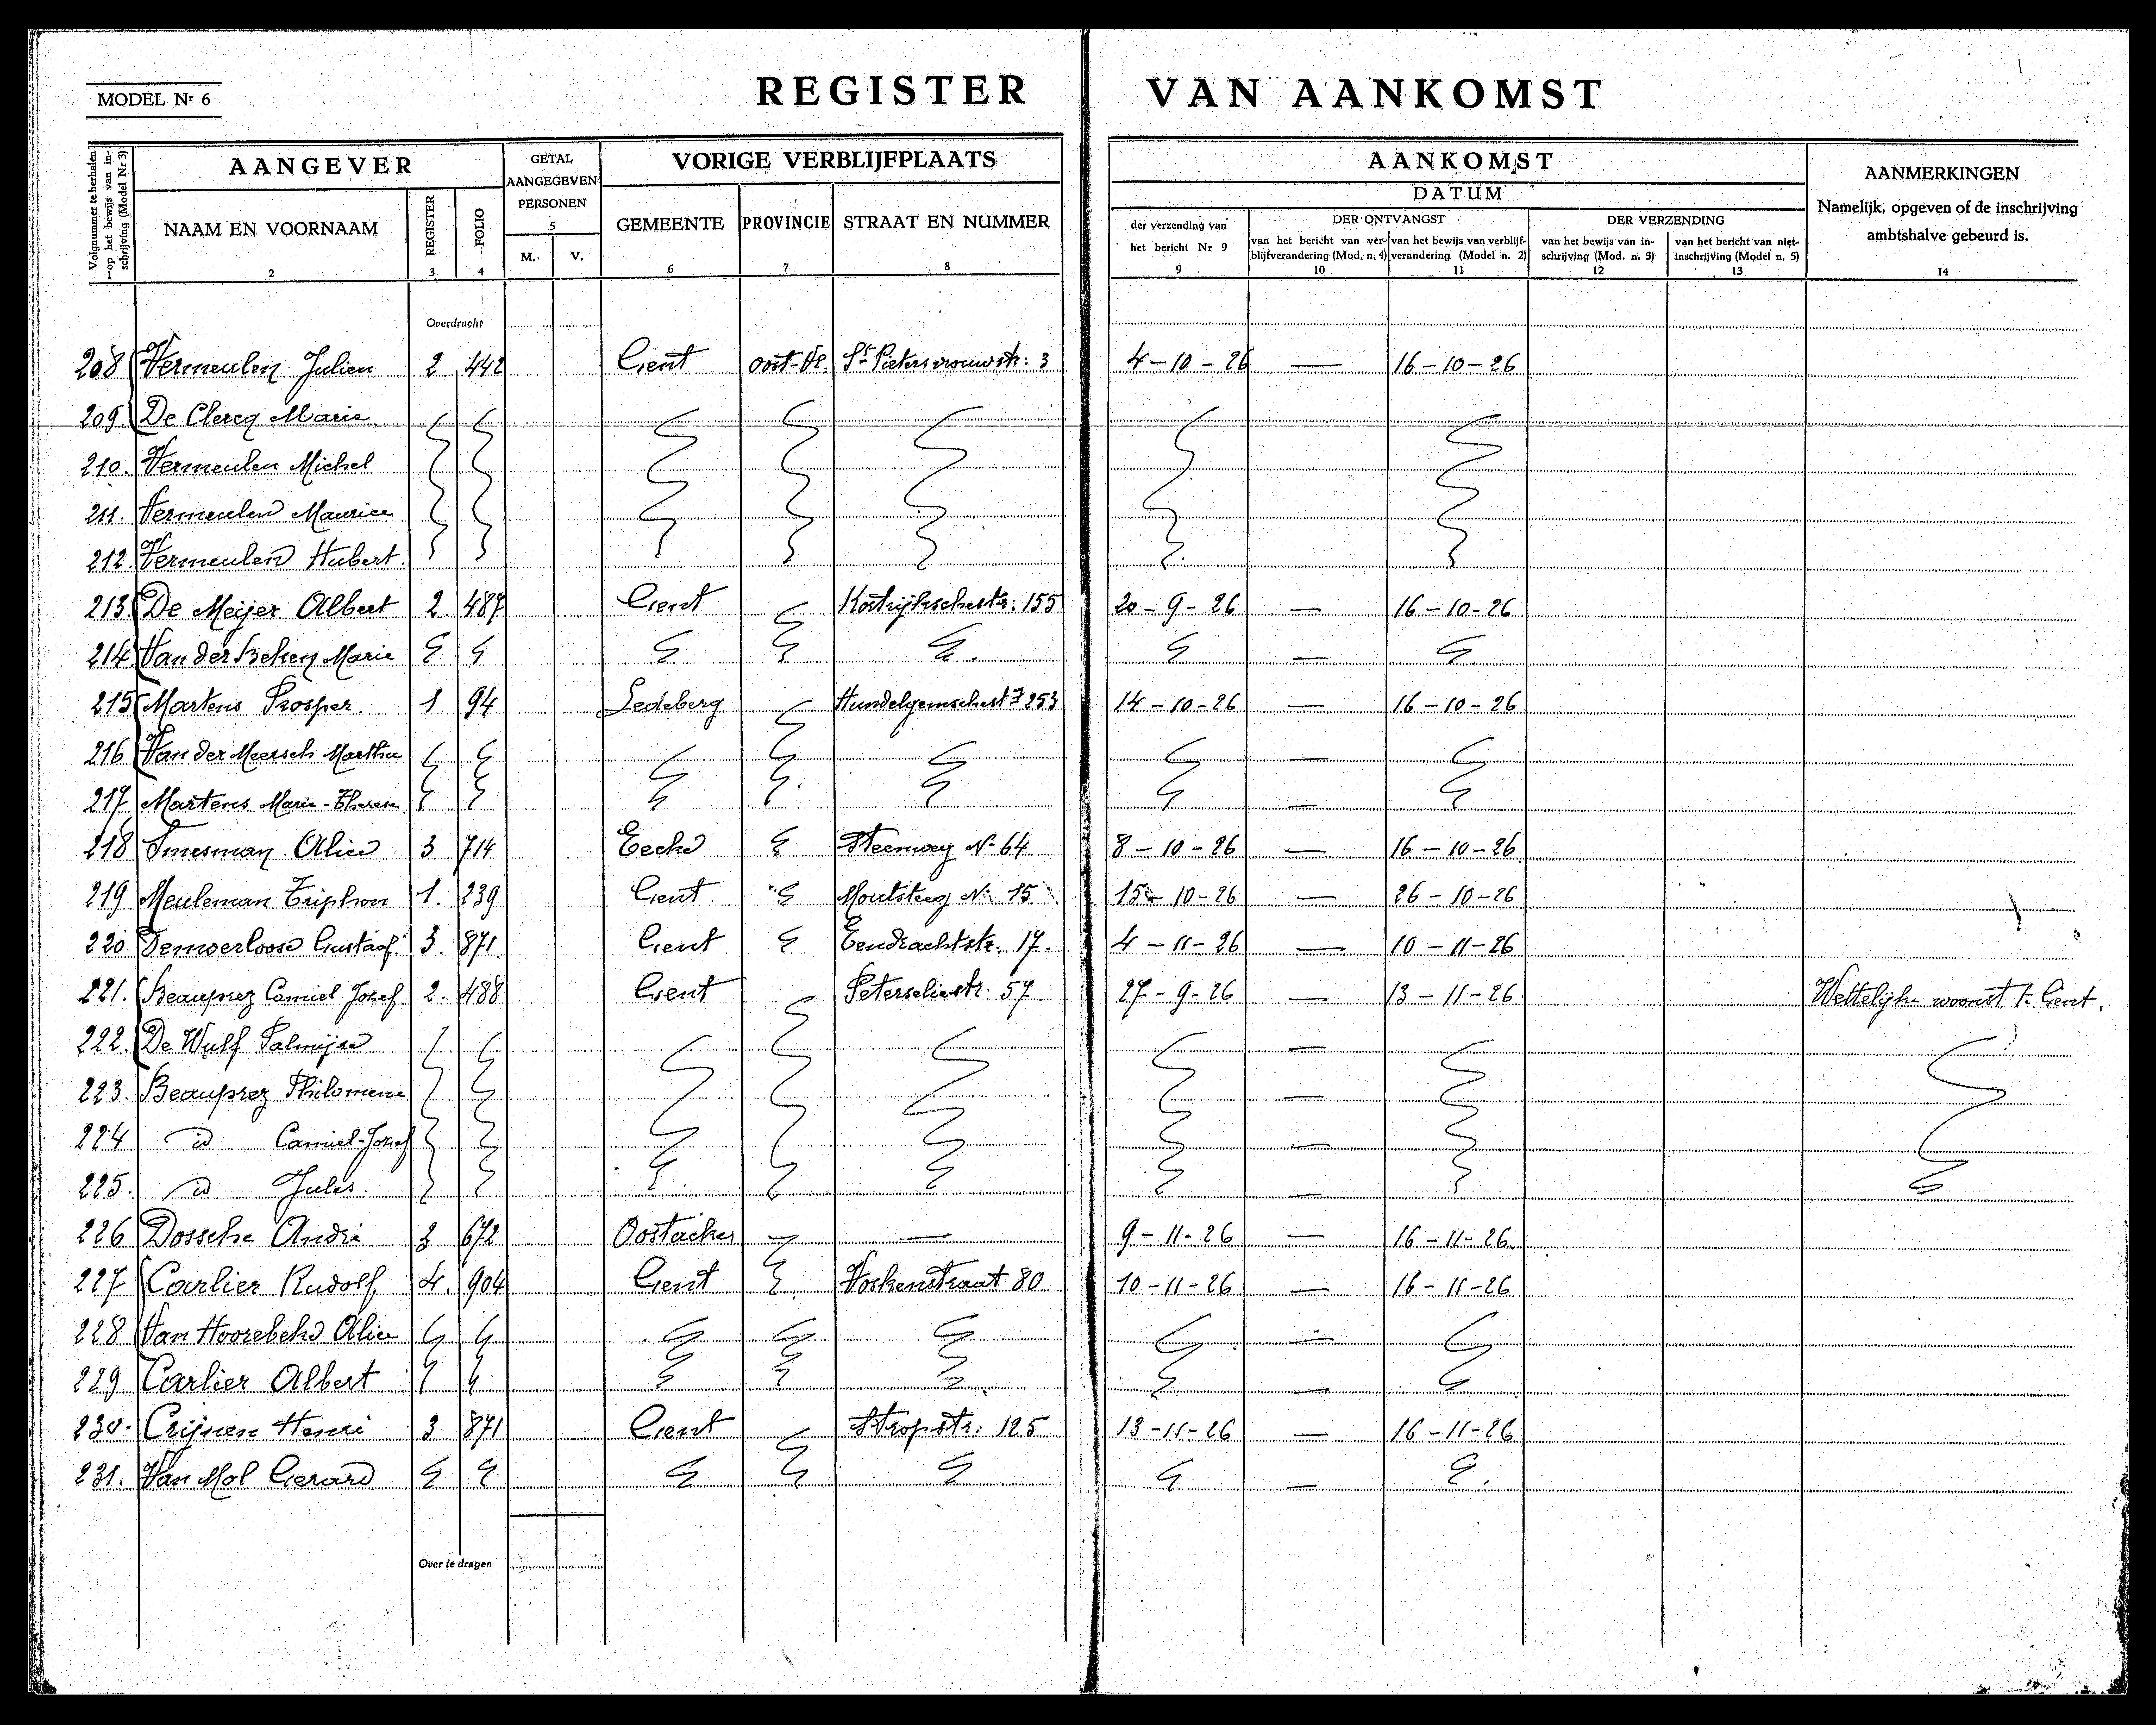 MODEL Nr 6
REGISTER VAN AANKOMST
Volgnummer te herhalen op het bewijs van inschrijving (Model Nr 3)
1
AANGEVER
NAAM EN VOORNAAM
2
REGISTER
3
FOLIO
4
GETAL AANGEGEVEN PERSONEN
5
M. V.
VORIGE VERBLIJFPLAATS
GEMEENTE
6
PROVINCIE
7
STRAAT EN NUMMER
8
AANKOMST
DATUM
der verzending van het bericht Nr 9
9
DER ONTVANGST
van het bericht van verblijfverandering (Mod. n. 4)
10
van het bewijs van verblijfverandering (Model n. 2)
11
DER VERZENDING
van het bewijs van inschrijving (Mod. n. 3)
12
van het bericht van niet-inschrijving (Model n. 5)
13
AANMERKINGEN
Namelijk, opgeven of de inschrijving ambtshalve gebeurd is.
14
Overdracht
208 Vermeulen Julien 2 442 Gent Oost-Vl. St Pietersvrouwstr: 3 4-10-26 — 16-10-26
209. De Clercq Marie
210. Vermeulen Michel
211. Vermeulen Maurice
212. Vermeulen Hubert.
213. De Meijer Albert 2. 487 Gent Kortrijkschestr: 155 20-9-26 — 16-10-26
214 Van der Beken Marie —
215 Martens Prosper 1. 94 Ledeberg 253 14-10-26 — 16-10-26
216 Van der Meersch Martha —
217 Martens Marie-Therese —
218 Smesman Alice 3 714 Eecke Steenweg No 64 8-10-26 — 16-10-26
219 Meuleman Triphon 1. 239 Gent. Moutsteeg No 15 15-10-26 — 26-10-26
220 Gustaaf. 3. 871. Gent Eendrachtstr. 17. 4-11-26 — 10-11-26
221. Beauprez Camiel Jozef. 2. 488 Gent Peterseliestr: 57 27-9-26 — 13-11-26 Wettelijke woonst te Gent.
222. De Wulf Palmijre —
223. Beauprez Philomene —
224 id Camiel-Jozef —
225. id Jules. —
226 Dossche André 3 672 Oostacker — 9-11-26 — 16-11-26.
227 Carlier Rudolf 4. 904 Gent Voskenstraat 80 10-11-26 — 16-11-26
228 Van Hoorebeke Alice —
229 Carlier Albert —
230. Crijnen Henri 3 871 Gent Stropstr: 125 13-11-26 — 16-11-26
231. Van Mol Gerard —
Over te dragen